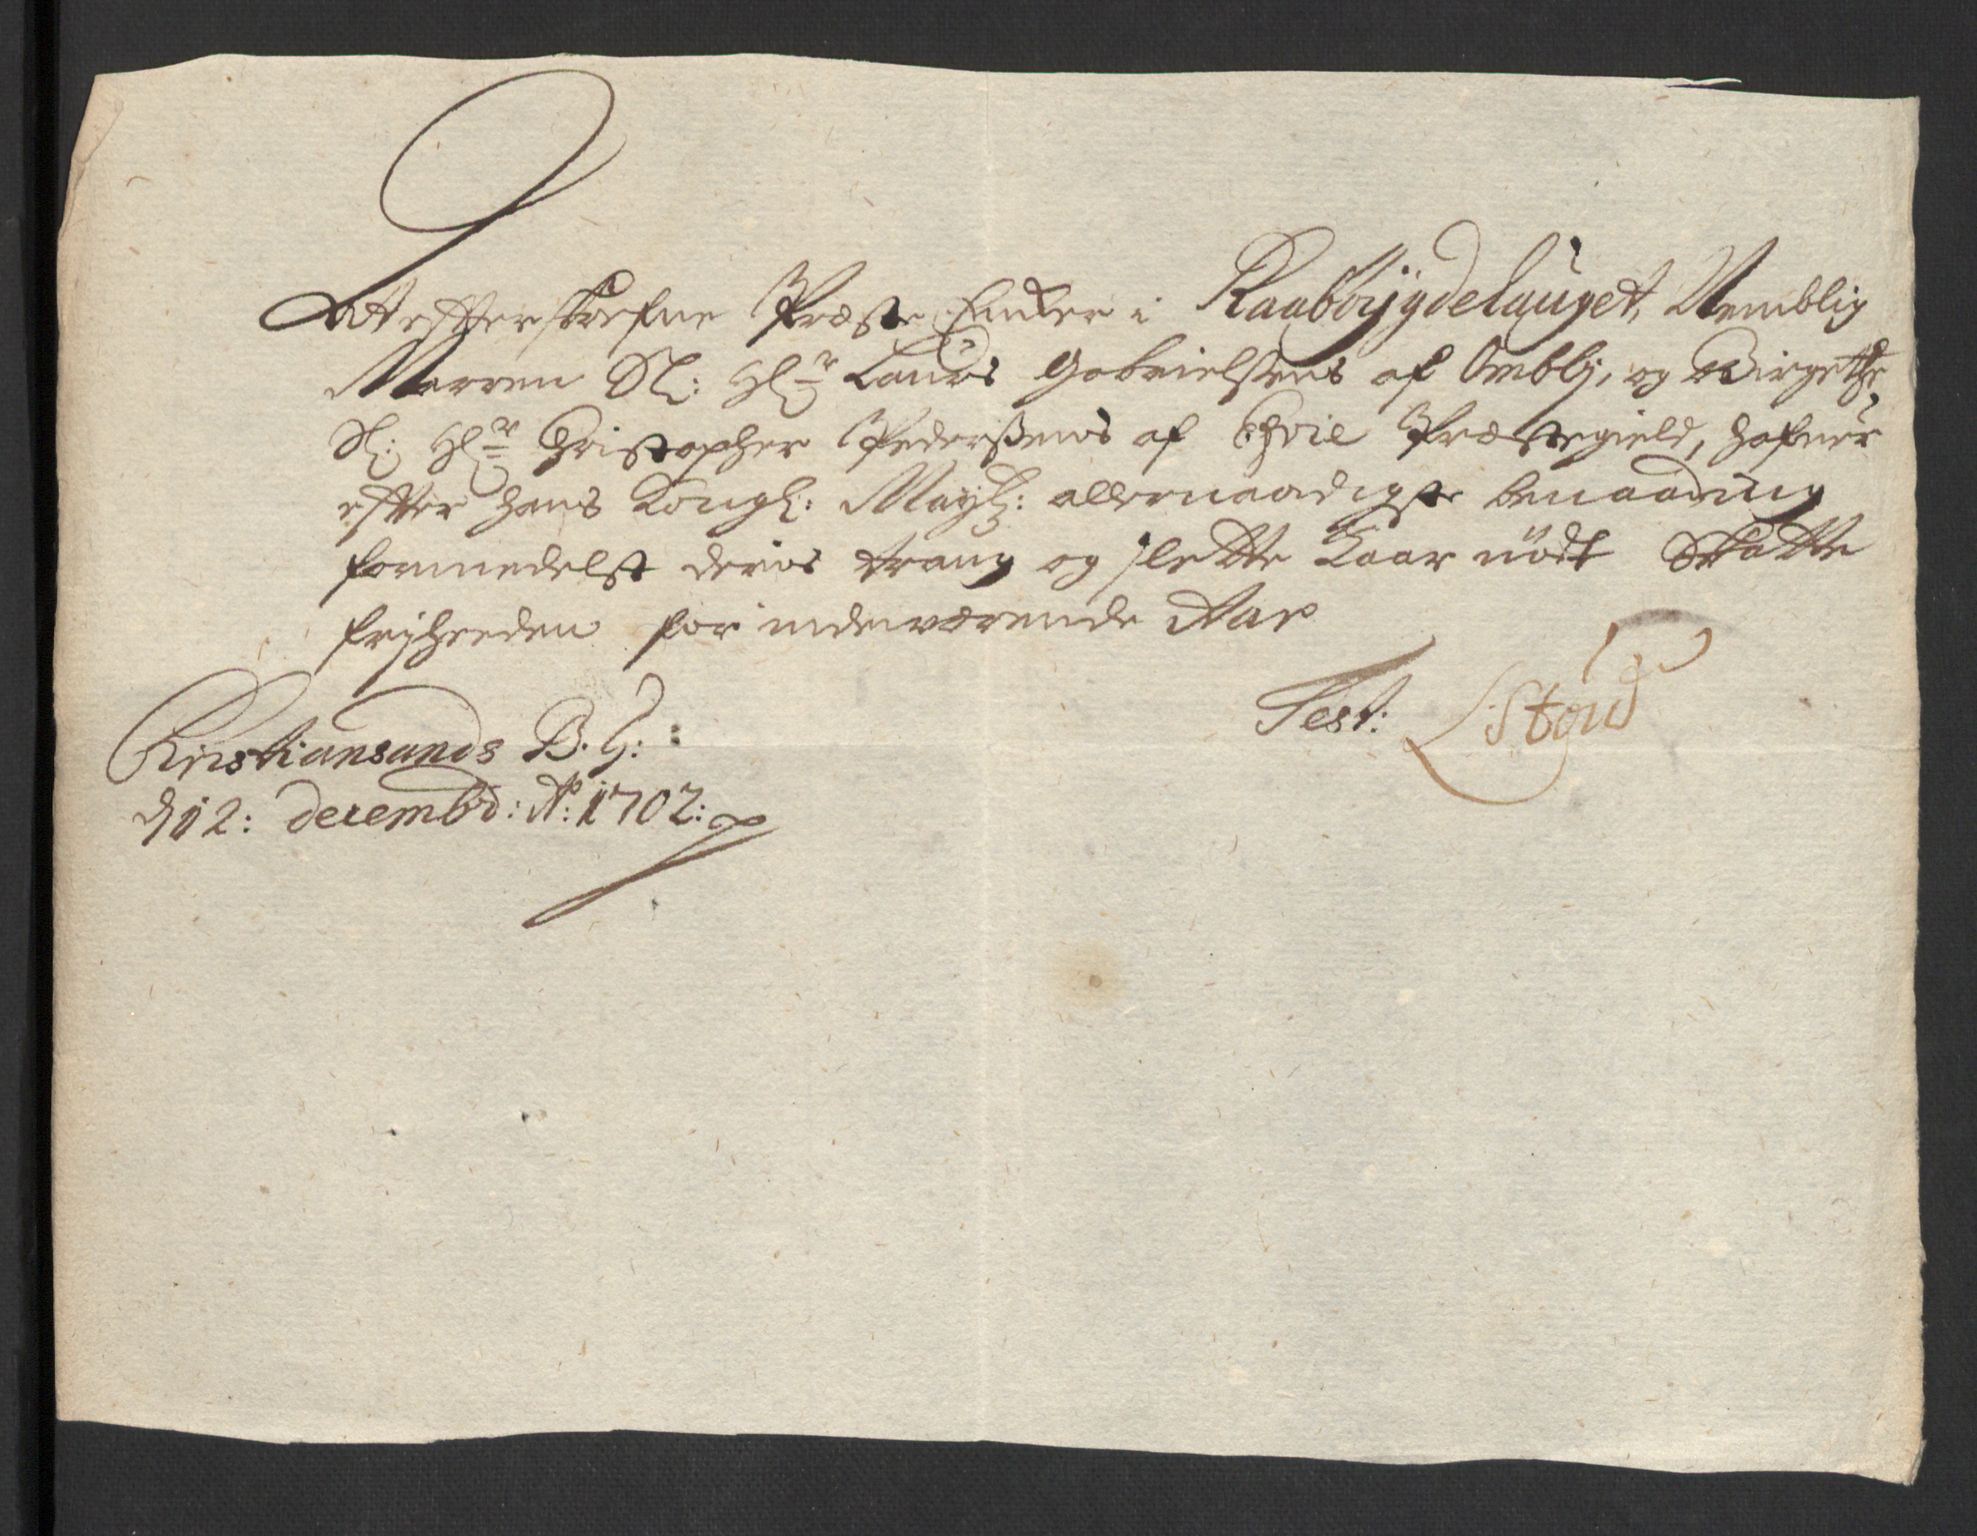 At efterskrefne Præste Encker i Raabÿgdelauget, Nemblig
Marren Sl: Hr Laurs Gabrielsens af Ombly, og Birgethe
Sl: Hr Christopher Pedersens af Præstegield, hafuer
efter hans Kongl: Mayt: allernaadigste benaading
formedelst deris trang og slette Kaar nødt Skatte
frijheeden for indeværende Aar
Test: LStoud
Christiansands B.G:
d 12: decembr: Ao: 1702: